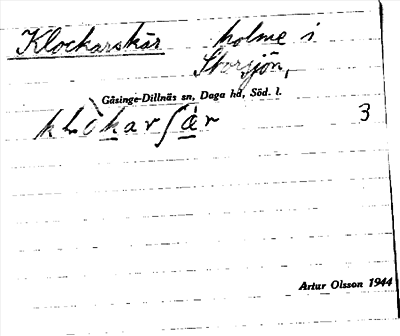 Klockarskär holme i
Storsjön,
Gåsinge-Dillnäs sn, Daga hd, Söd. l.
klòkarʃàr 3
Artur Olsson 1944